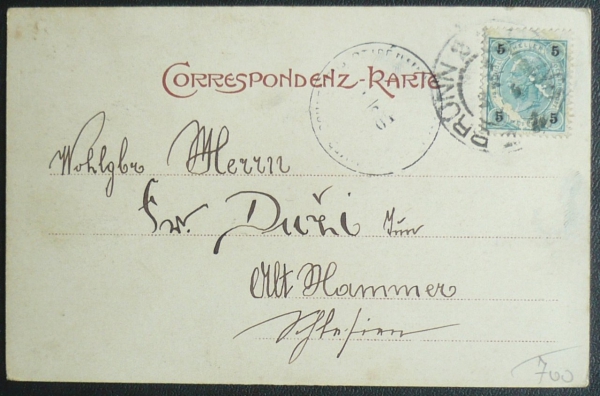 CORRESPONDENZ-KARTE
BRÜNN
5 5
5 5
Wohlgbr Herrn
Fr. Duři Jun
Alt Hammer
Schlesien
700